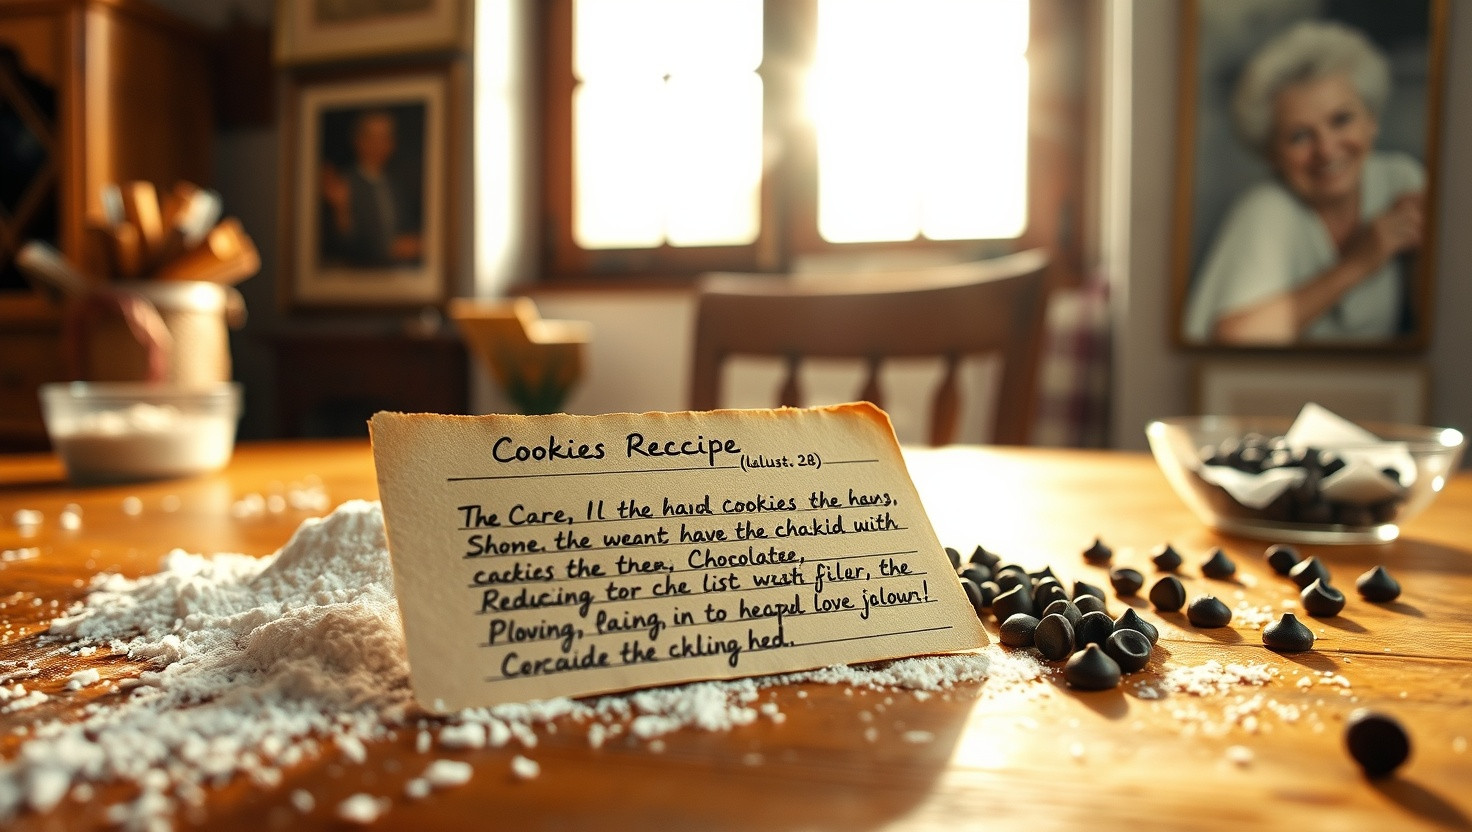 Cookies Reccipe
(lalust. 28)
The Care, Il the hard cookies the havs.
Shone. the weant have the chakid with
cackies the then, Chocolatee,
Reducing tor che list wush filer, the
Ploving, laing, in to heapd love jolown!
Corcaide the ckling hed.